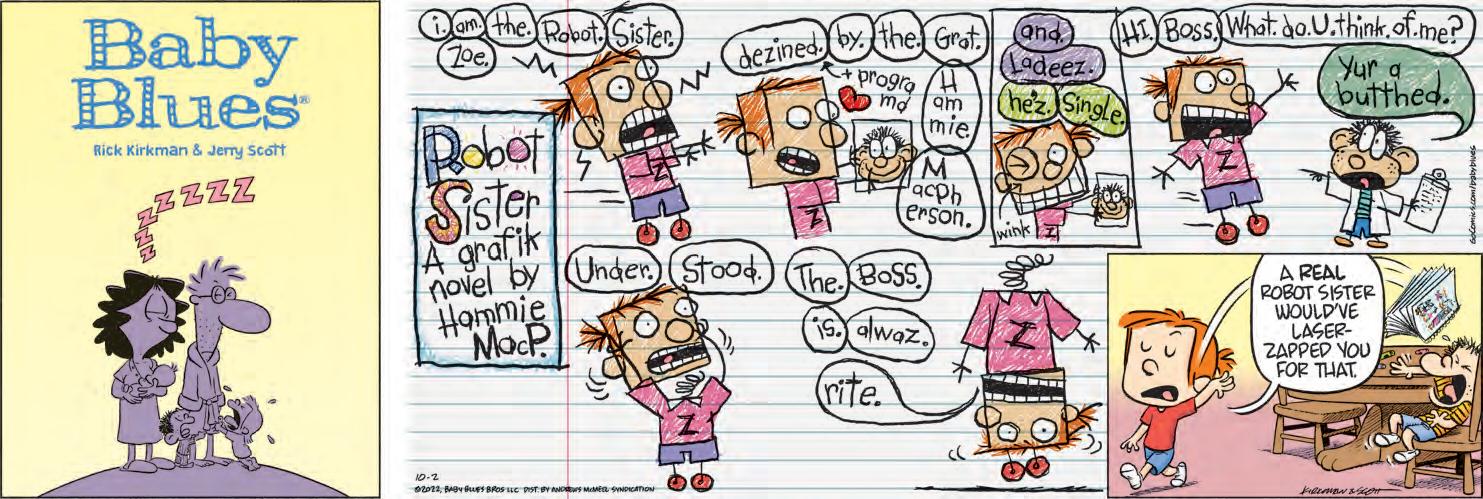 Baby
Blues®
Rick Kirkman & Jerry Scott
Z Z Z Z Z Z Z Z
Robot
Sister
A grafik
novel by
Hammie
MacP.
i. am. the. Robot. Sister.
Zoe.
Z
dezined. by. the. Grat.
+ progra
md
H
am
mie.
M
acph
erson.
Z
and.
Ladeez.
he'z. Single.
wink
Z
HI. Boss. What. do. U. think. of. me?
Yur a
butthed.
Z
gocomics.com/babyblues
Under. Stood.
Z
The. Boss.
is. alwaz.
rite.
Z
10-2
©2022, BABY BLUES BROS LLC DIST. BY ANDREWS McMEEL SYNDICATION
A REAL
ROBOT SISTER
WOULD'VE
LASER-
ZAPPED YOU
FOR THAT.
KIRKMAN & SCOTT